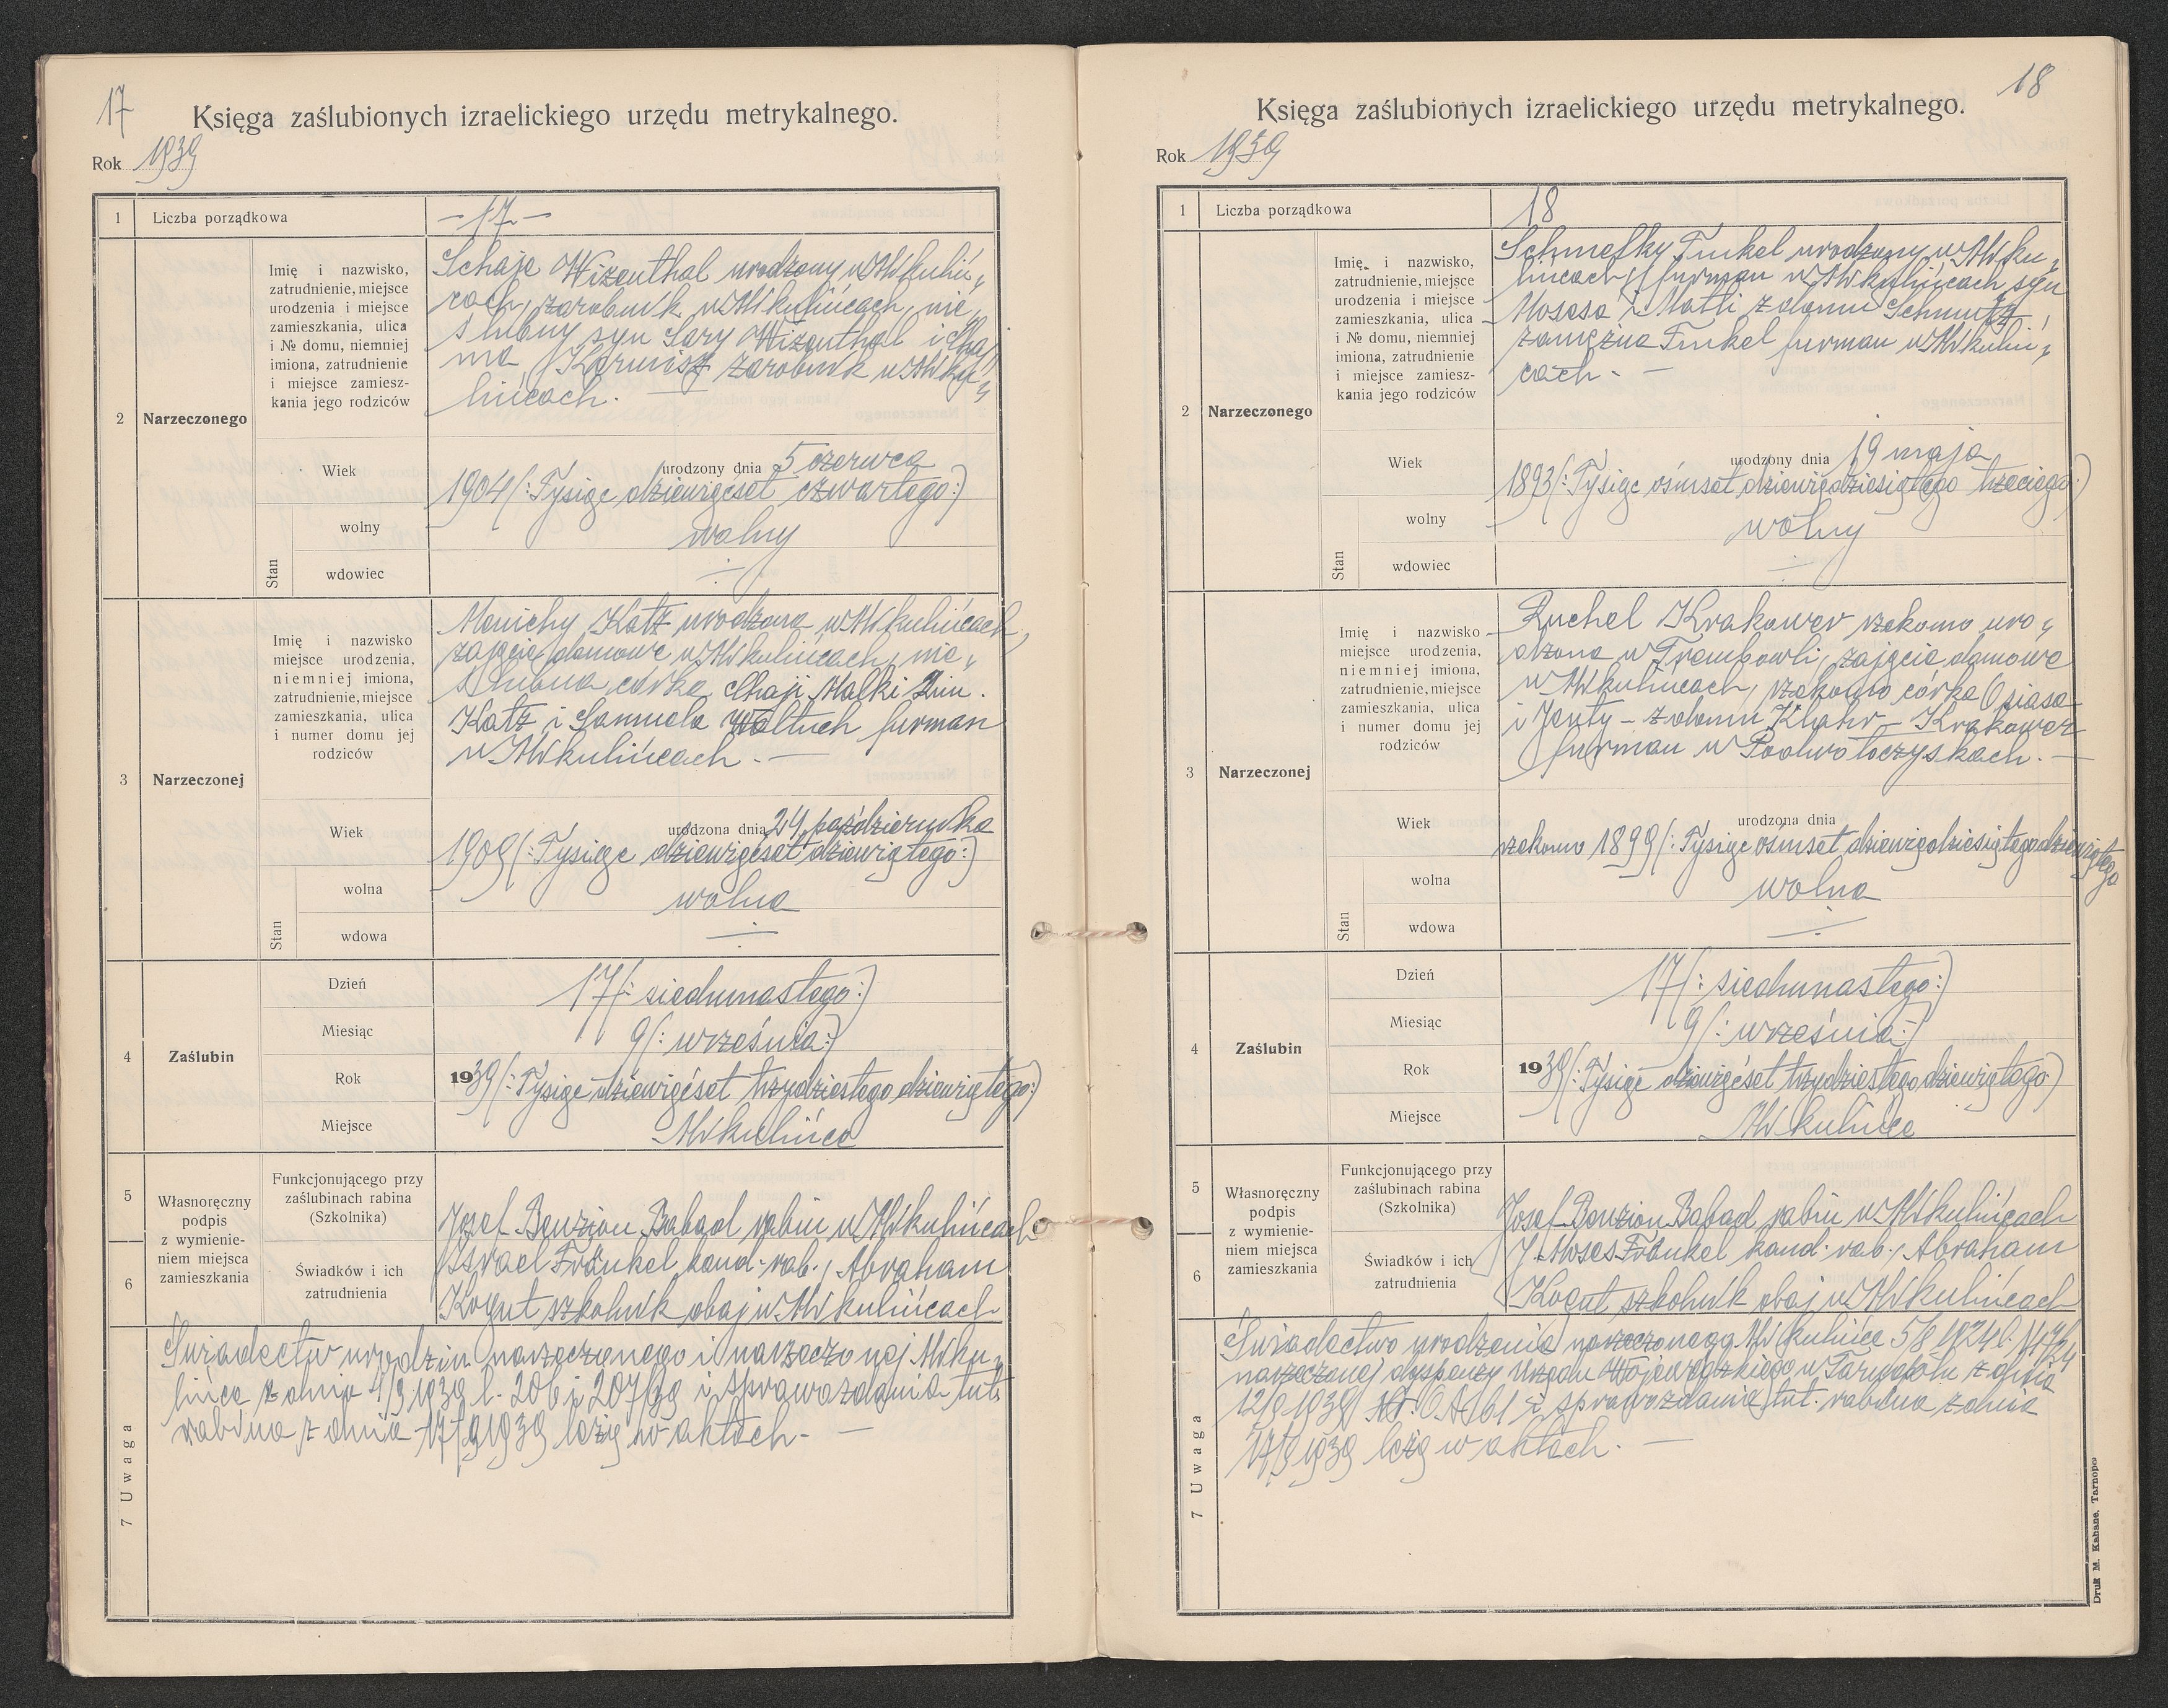 17
Księga zaślubionych izraelickiego urzędu metrykalnego.
Rok 1939
1 Liczba porządkowa - 17 -
2 Narzeczonego
Imię i nazwisko,
zatrudnienie, miejsce
urodzenia i miejsce
zamieszkania, ulica
i № domu, niemniej
imiona, zatrudnienie
i miejsce zamiesz-
kania jego rodziców
Schaje Wizenthal urodzony w Mikuliń„
cach, zarobnik w Mikulińcach, nie„
ślubny syn Sary Wizenthal i Chai
ma Karmisz zarobnik w Miku„
lińcach. —
Wiek
urodzony dnia 5 czerwca
1904 (: Tysiąc dziewięćset czwartego :)
Stan
wolny wolny
wdowiec
3 Narzeczonej
Imię i nazwisko
miejsce urodzenia,
niemniej imiona,
zatrudnienie, miejsce
zamieszkania, ulica
i numer domu jej
rodziców
Menichy Katz urodzona w Mikulińcach,
zajęcie domowe w Mikulińcach, nie„
ślubna córka Chaji Malki
Katz i Samuela Waltuch furman
w Mikulińcach. —
Wiek
urodzona dnia 24 października
1909 (: Tysiąc dziewięćset dziewiątego :)
Stan
wolna wolna
wdowa
4 Zaślubin
Dzień 17 (: siedmnastego :)
Miesiąc 9 (: września :)
Rok 1939 (: Tysiąc dziewięćset trzydziestego dziewiątego :)
Miejsce Mikulińce
5
6
Własnoręczny
podpis
z wymienie-
niem miejsca
zamieszkania
Funkcjonującego przy
zaślubinach rabina
(Szkolnika)
Josef Benzion Babad rabin w Mikulińcach
Świadków i ich
zatrudnienia
Israel Fränkel kand. rab., Abraham
Kogut szkolnik obaj w Mikulińcach
7 Uwaga
Świadectw urodzin narzeczonego i narzeczonej Miku„
lińce z dnia 4/9 1939 l. 206 i 207/39 i sprawozdania tut.
rabina z dnia 17/9 1939 leżą w aktach. —
18
Księga zaślubionych izraelickiego urzędu metrykalnego.
Rok 1939
1 Liczba porządkowa 18
2 Narzeczonego
Imię i nazwisko,
zatrudnienie, miejsce
urodzenia i miejsce
zamieszkania, ulica
i № domu, niemniej
imiona, zatrudnienie
i miejsce zamiesz-
kania jego rodziców
Schmelky Finkel urodzony w Miku„
lińcach, furman w Mikulińcach syn
Mosesa i Matli z domu
zamężna Finkel furman w Mikuliń„
cach. —
Wiek
urodzony dnia 19 maja
1893 (: Tysiąc ośmset dziewięćdziesiątego trzeciego :)
Stan
wolny wolny
wdowiec
3 Narzeczonej
Imię i nazwisko
miejsce urodzenia,
niemniej imiona,
zatrudnienie, miejsce
zamieszkania, ulica
i numer domu jej
rodziców
Ruchel Krakower rzekomo uro„
dzona w Trembowli, zajęcie domowe
w Mikulińcach, rzekomo córka Osiasa
i Jenty - z domu Klahr - Krakower
furman w Podwołoczyskach. —
Wiek
urodzona dnia
rzekomo 1899 (: Tysiąc ośmset dziewięćdziesiątego dziewiątego
Stan
wolna wolna
wdowa
4 Zaślubin
Dzień 17 (: siedmnastego :)
Miesiąc 9 (: września :)
Rok 1939 (: Tysiąc dziewięćset trzydziestego dziewiątego :)
Miejsce Mikulińce
5
6
Własnoręczny
podpis
z wymienie-
niem miejsca
zamieszkania
Funkcjonującego przy
zaślubinach rabina
(Szkolnika)
Josef Benzion Babad rabin w Mikulińcach
Świadków i ich
zatrudnienia
J. Moses Fränkel kand. rab., Abraham
Kogut szkolnik obaj w Mikulińcach
7 Uwaga
Świadectwo urodzenia narzeczonego Mikulińce 5/8 1924 l.
narzeczonej dyspenzy Urzędu Wojewódzkiego w Tarnopolu z dnia
12/9 1939 i sprawozdanie tut. rabina z dnia
17/9 1939 leżą w aktach. —
Druk M. Kahane, Tarnopol